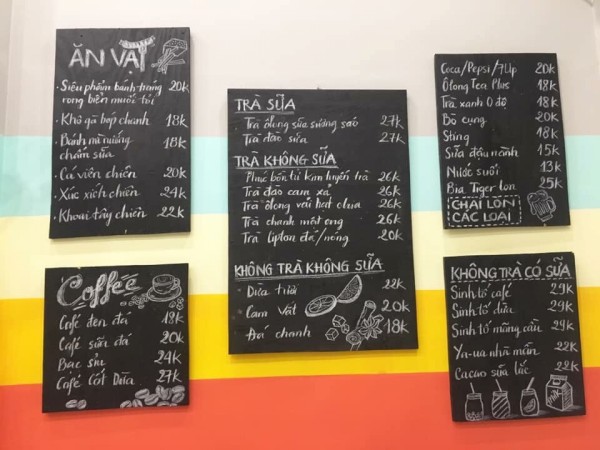 ĂN VẶT
· Siêu phẩm bánh tráng 20k
rong biển muối tỏi
· Khô gà bơ chanh 18k
· Bánh mì nướng 18k
chấm sữa
· Cá viên chiên 20k
· Xúc xích chiên 24k
· Khoai tây chiên 22k
Coffee
Cafe đen đá 18k
Cafe sữa đá 20k
Bạc sỉu 24k
Cafe Cốt Dừa 27k
TRÀ SỮA
· Trà ôlong sữa sương sáo 27k
· Trà đào sữa 27k
TRÀ KHÔNG SỮA
· Phúc bồn tử kem tuyết trà 26k
· Trà đào cam xả 26k
· Trà ôlong vải hạt chia 26k
· Trà chanh mật ong 26k
· Trà lipton đá/nóng 20k
KHÔNG TRÀ KHÔNG SỮA
· Dừa trời 22k
· Cam vắt 20k
· Đá chanh 18k
Coca/Pepsi/7Up 20k
Ôlong Tea Plus 18k
Trà xanh O độ 18k
Bò cụng 20k
Sting 18k
Sữa đậu nành 15k
Nước suối 13k
Bia Tiger lon 25k
CHAI LON
CÁC LOẠI
KHÔNG TRÀ CÓ SỮA
Sinh tố café 29k
Sinh tố dâu 29k
Sinh tố mãng cầu 29k
Ya-ua nhà mần 22k
Cacao sữa lắc 22k